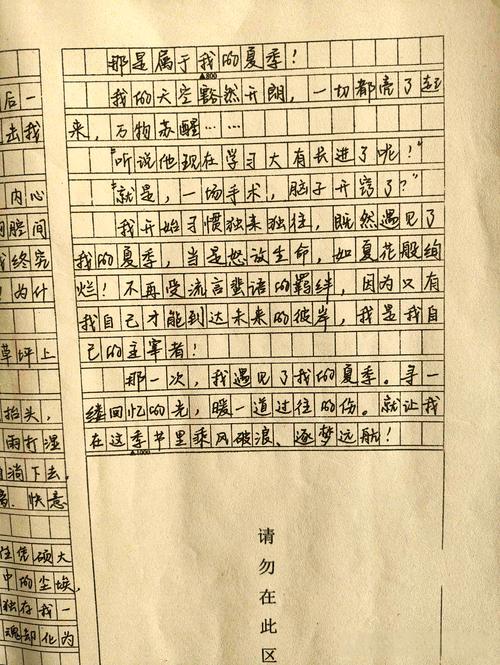 那是属于我的夏季！
▲800
我的天空豁然开朗，一切都亮了起
来，万物苏醒……
“听说他现在学习大有长进了呢！”
“就是，一场手术，脑子开窍了？”
我开始习惯独来独往，既然遇见了
我的夏季，当是怒放生命，如夏花般绚
烂！不再受流言蜚语的羁绊，因为只有
我自己才能到达未来的彼岸，我是我自
己的主宰者！
那一次，我遇见了我的夏季。寻一
缕回忆的光，暖一道过往的伤。就让我
在这季节里乘风破浪、逐梦远航！
▲1000
请勿在此区
后一
去我
内心
胸腔间
我终究
为什
草坪上
抬头，
雨打湿
自淌下去，
快意
任凭硕大
中的尘埃，
独存我一
魂却化为